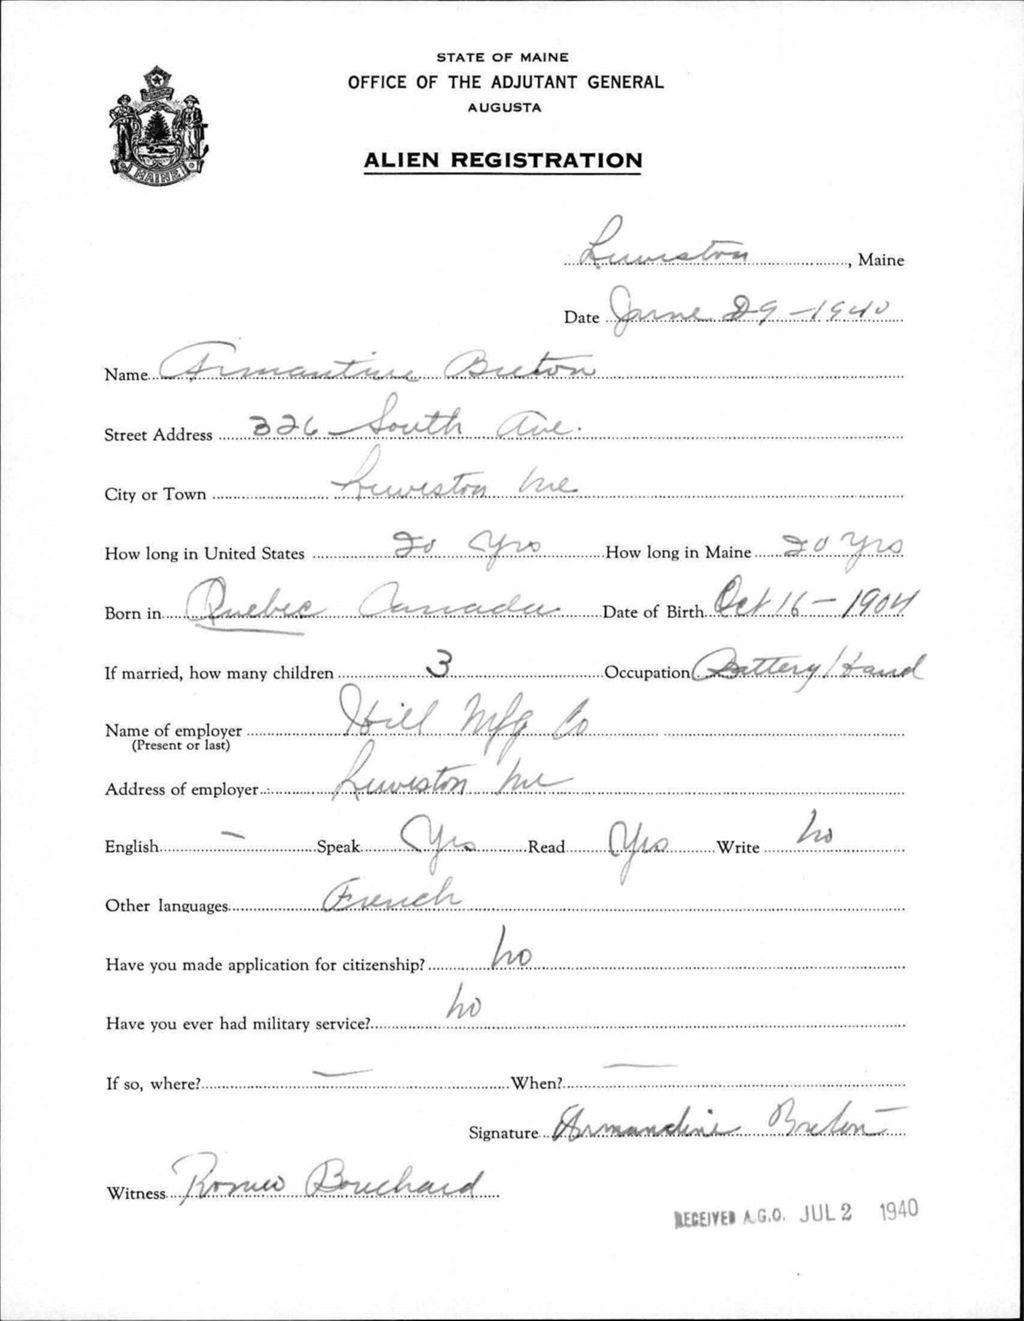 STATE OF MAINE
OFFICE OF THE ADJUTANT GENERAL
AUGUSTA
MAINE
ALIEN REGISTRATION
Lewiston, Maine
Date June 29 - 1940
Name Armantine Breton
Street Address 326 South Ave.
City or Town Lewiston Me
How long in United States 20 Yrs How long in Maine 20 Yrs
Born in Quebec Canada Date of Birth Oct 16 - 1904
If married, how many children 3 Occupation Battery Hand
Name of employer Hill Mfg Co
(Present or last)
Address of employer Lewiston Me
English — Speak Yes Read Yes Write no
Other languages French
Have you made application for citizenship? no
Have you ever had military service? no
If so, where? — When? —
Signature Armandine Breton
Witness Romeo Bouchard
RECEIVED A.G.O. JUL 2 1940